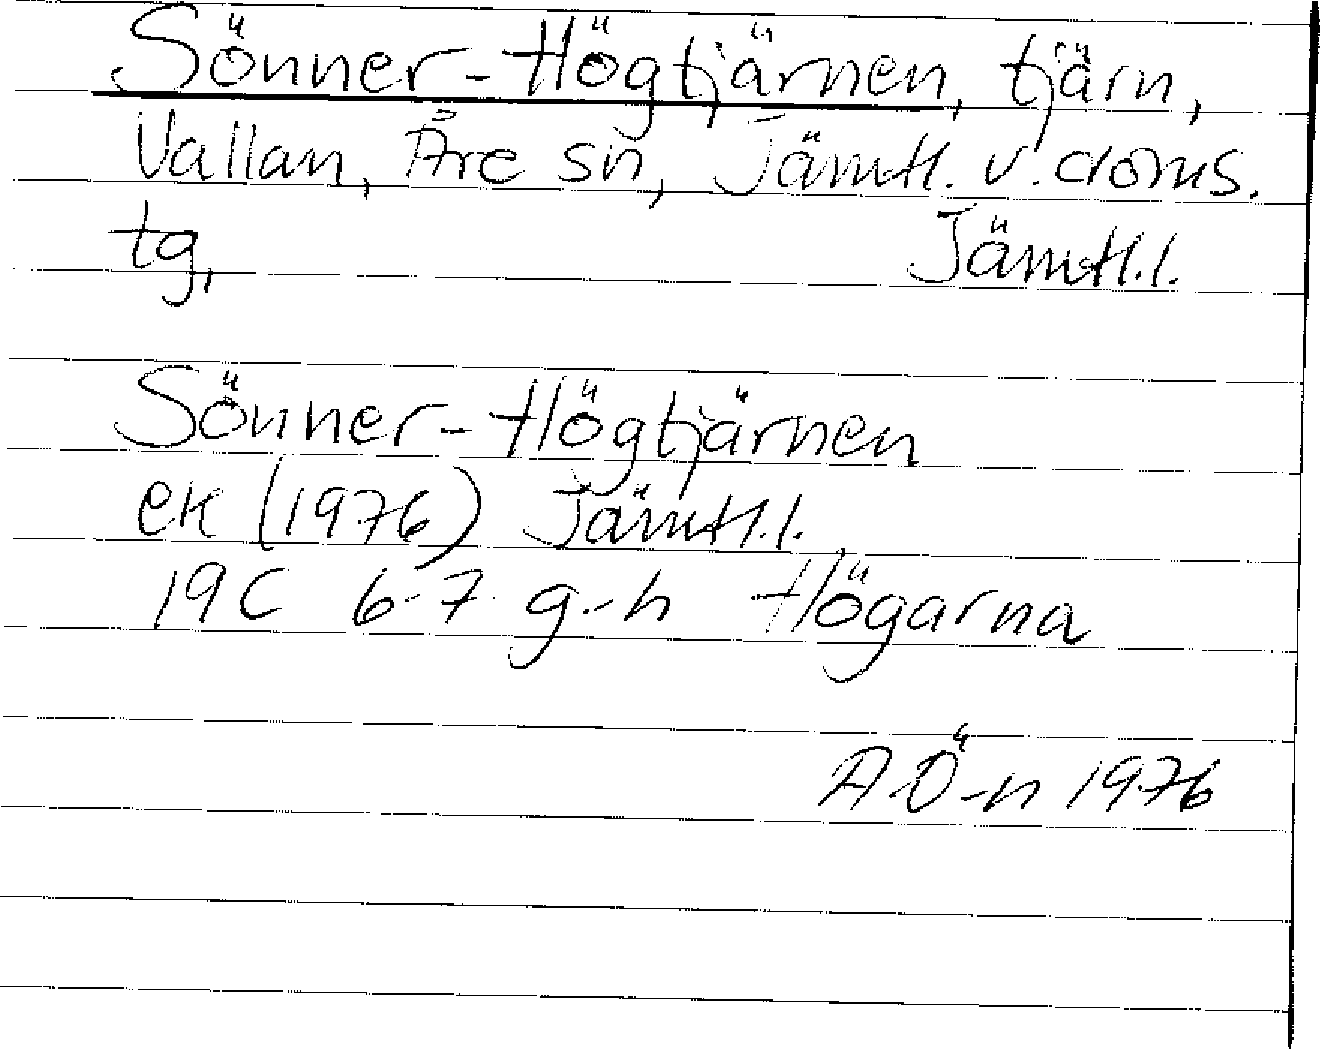 Sönner-Högtjärnen, tjärn,
Vallan, Åre sn, Jämtl. v. doms.
tg,                    Jämtl.l.
Sönner-Högtjärnen
ek (1976) Jämtl.l.
19C 6-7 g-h Högarna
A Ö-n 1976